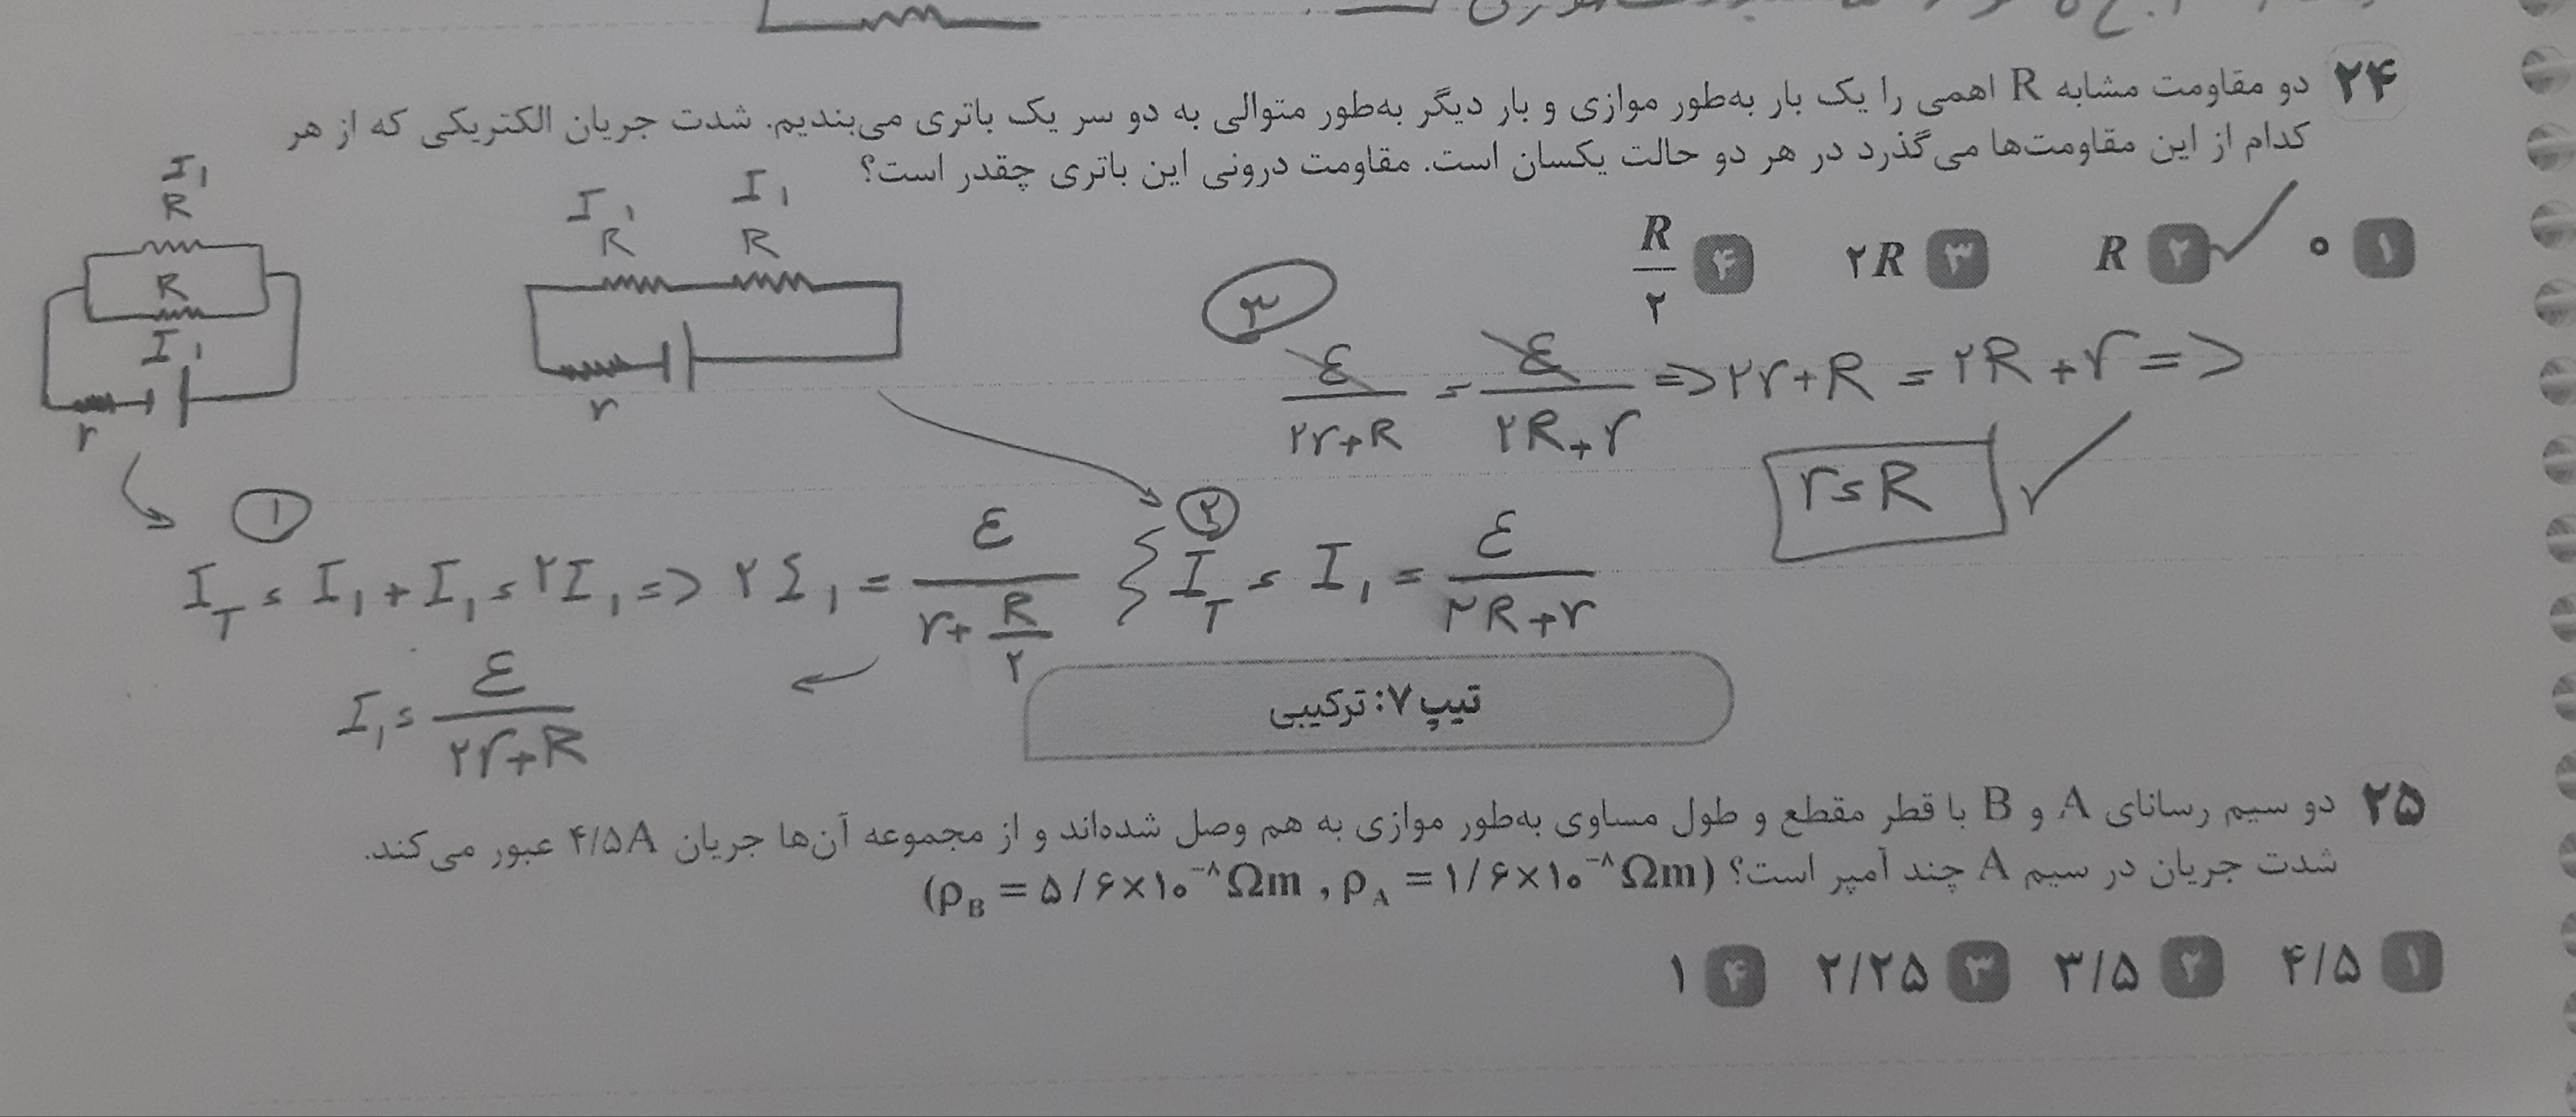 ۲۴ دو مقاومت مشابه R اهمی را یک بار به‌طور موازی و بار دیگر به‌طور متوالی به دو سر یک باتری می‌بندیم. شدت جریان الکتریکی که از هر
کدام از این مقاومت‌ها می‌گذرد در هر دو حالت یکسان است. مقاومت درونی این باتری چقدر است؟
۱ ۰ ۲ R ۳ ۲R ۴ R/۲
I₁
R
R
I₁
r
I₁ I₁
R R
r
۳
ε/(۲r+R) = ε/(۲R+r) => ۲r+R = ۲R+r =>
r=R
۱
I_T = I₁ + I₁ = ۲I₁ => ۲I₁ = ε/(r+R/۲)
۲
I_T = I₁ = ε/(۲R+r)
I₁ = ε/(۲r+R)
تیپ ۷: ترکیبی
۲۵ دو سیم رسانای A و B با قطر مقطع و طول مساوی به‌طور موازی به هم وصل شده‌اند و از مجموعه آن‌ها جریان ۴/۵A عبور می‌کند.
شدت جریان در سیم A چند آمپر است؟ (ρ_B = ۵/۶×۱۰⁻⁸Ωm , ρ_A = ۱/۶×۱۰⁻⁸Ωm)
۱ ۴/۵ ۲ ۳/۵ ۳ ۲/۲۵ ۴ ۱